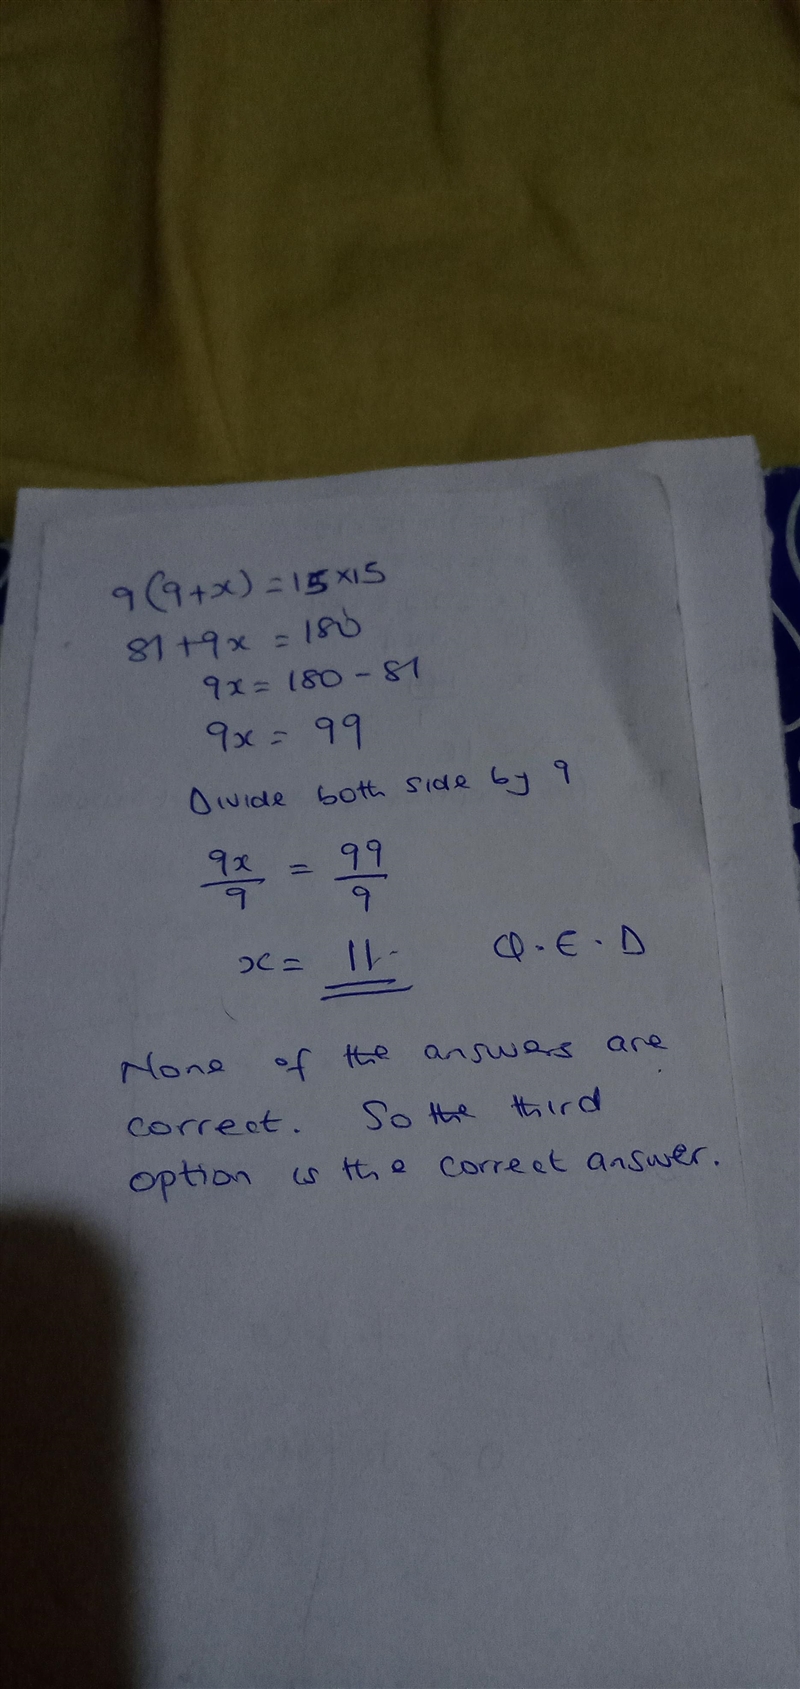 9(9+x) = 15×15
81+9x = 180
9x = 180 - 81
9x = 99
Divide both side by 9
9x/9 = 99/9
x = 11 Q.E.D
None of the answers are
correct. So the third
option is the correct answer.